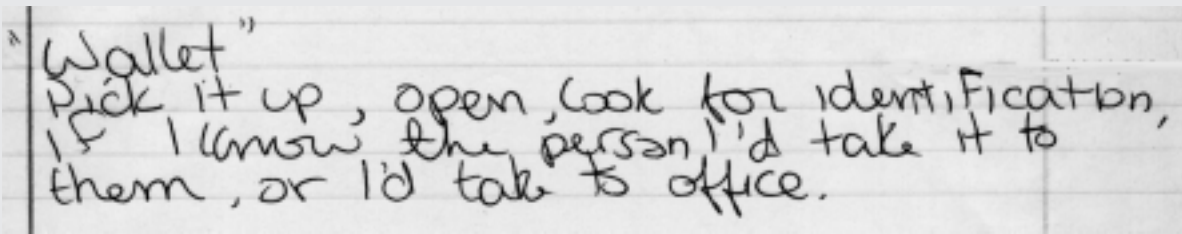 "Wallet"
Pick it up, open, look for identification,
if I know the person I'd take it to
them, or I'd take to office.